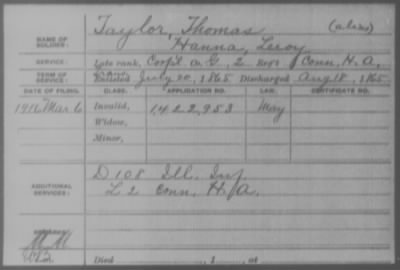 NAME OF SOLDIER: Taylor, Thomas (alias)
Hanna, Leroy
SERVICE: Late rank, Corpl Co. G., 2 Regt Conn. H.A.
TERM OF SERVICE: Enlisted July 20, 1865 Discharged Aug 18, 1865
DATE OF FILING. CLASS. APPLICATION NO. LAW. CERTIFICATE NO.
1916 Mar 6 Invalid, 1,422,953 May
Widow,
Minor,
ADDITIONAL SERVICES: D 108 Ill. Inf.
L 2 Conn. H.A.
Died , 1 , at